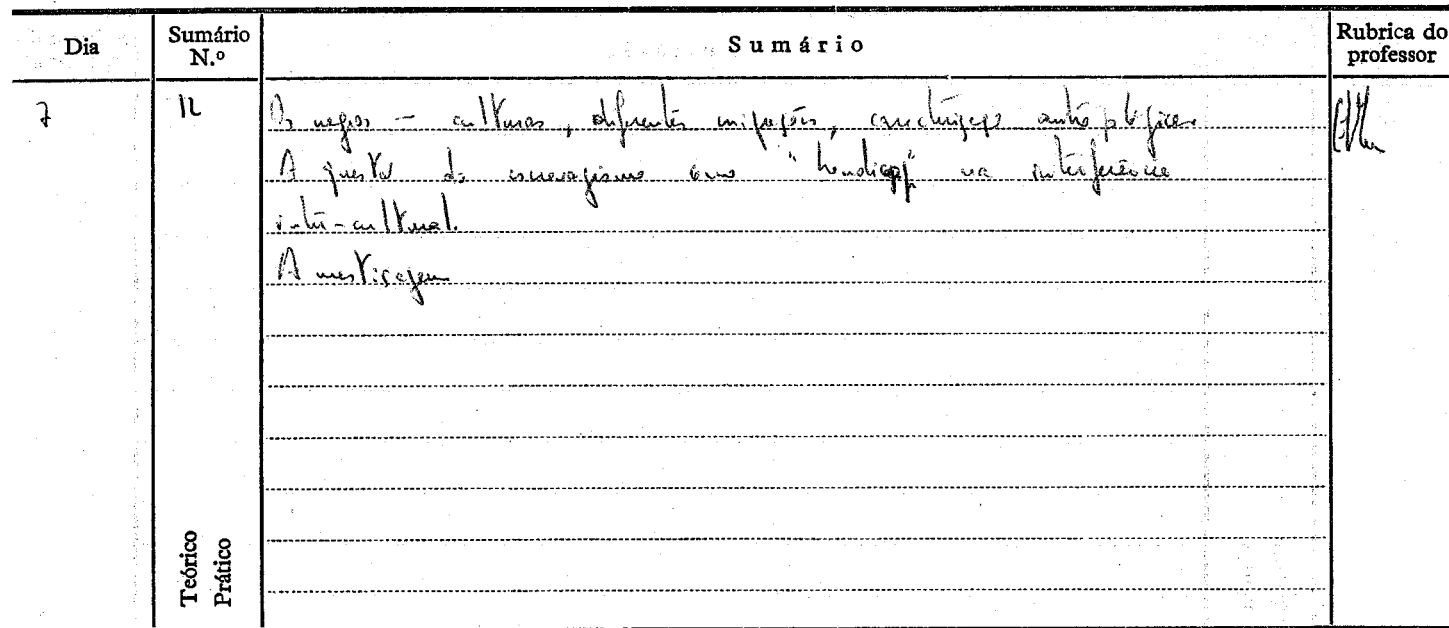 Dia
Sumário N.º
Sumário
Rubrica do professor
7
12
Os negros – culturas, diferentes migrações, caracterização antropológica.
A questão do escravagismo como "handicap" na interferência
inter-cultural.
A mestiçagem
Teórico
Prático